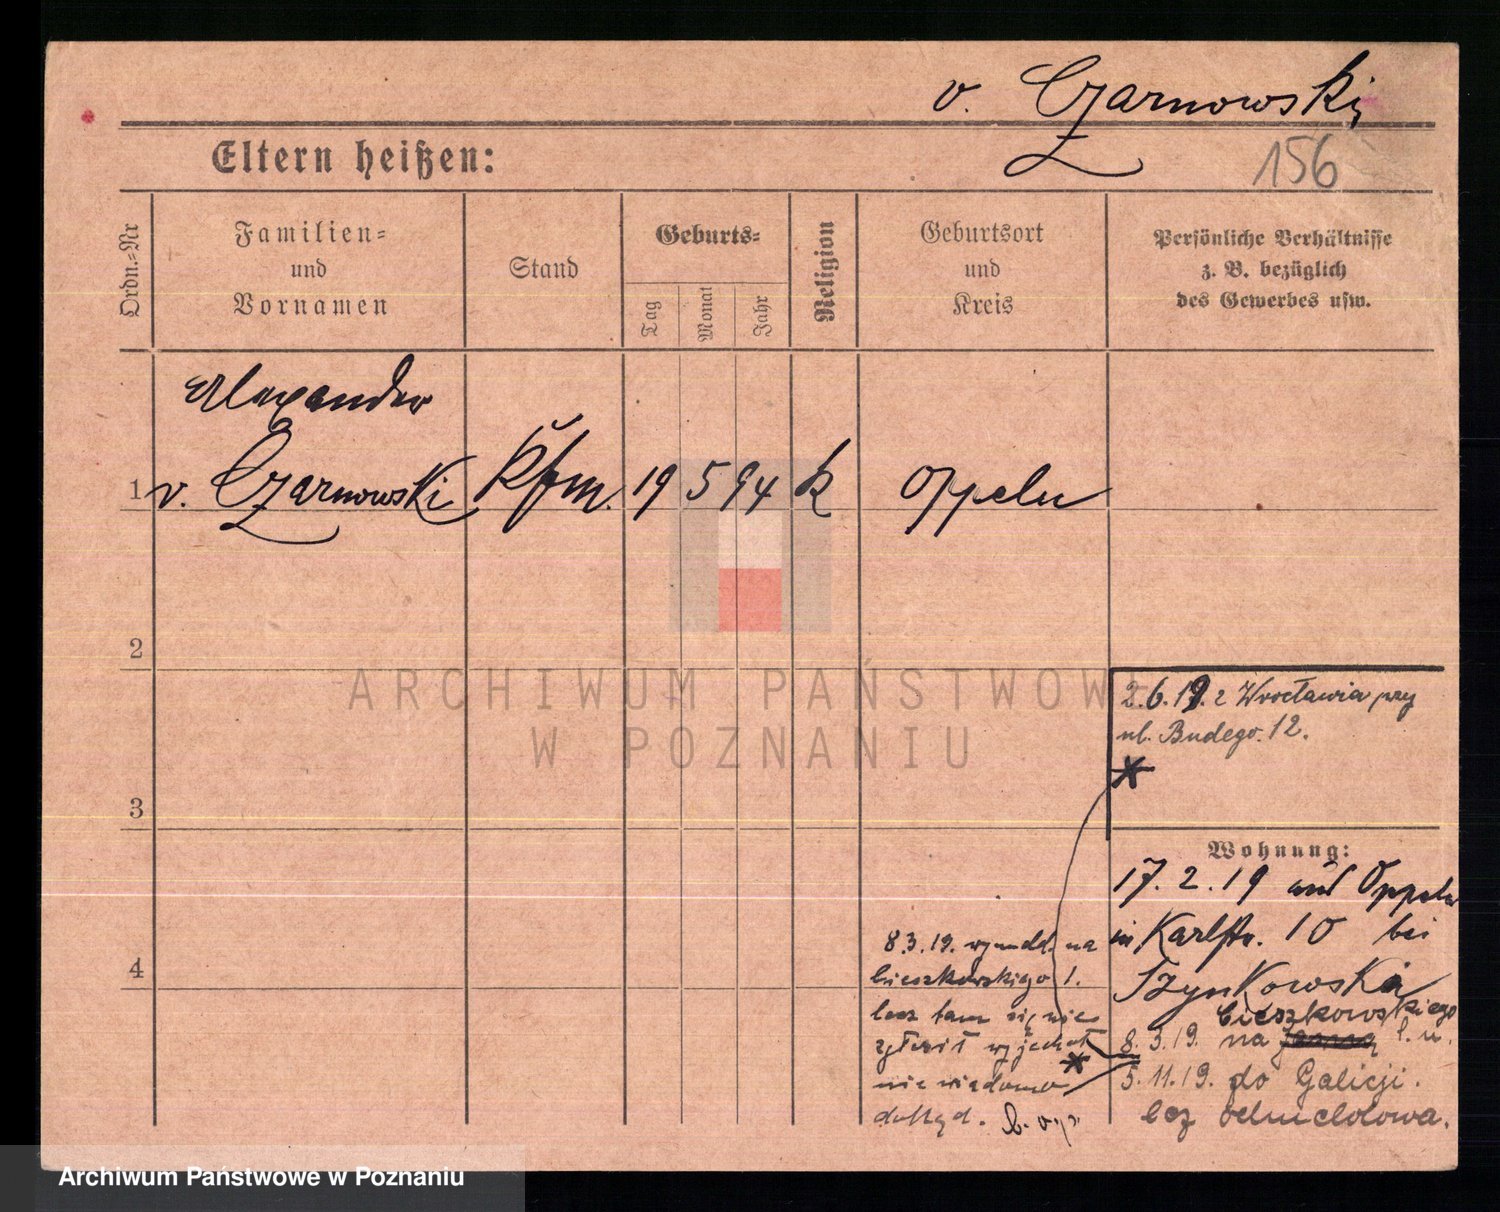 v. Czarnowski
Eltern heißen:
156
Ordn.-Nr
Familien-
und
Vornamen
Stand
Geburts-
Tag
Monat
Jahr
Religion
Geburtsort
und
Kreis
Persönliche Verhältnisse
z. B. bezüglich
des Gewerbes usw.
Alexander
1 v. Czarnowski Kfm. 19 5 94 k Oppeln
2
ARCHIWUM PAŃSTWOWE
W POZNANIU
2.6.19. z Wrocławia przy
ul. Budego. 12.
*
3
Wohnung:
17.2.19 aus Oppeln
in Karlstr. 10 bei
Szynkowska
Cieszkowskiego
8.3.19. na
5.11.19. do Galicji.
bez odmeldowa.
4
8.3.19. wymeld. na
Cieszkowskiego 1.
lecz tam się nie
zgłosił wyjechał
*
nie wiadomo
dokąd.
Archiwum Państwowe w Poznaniu